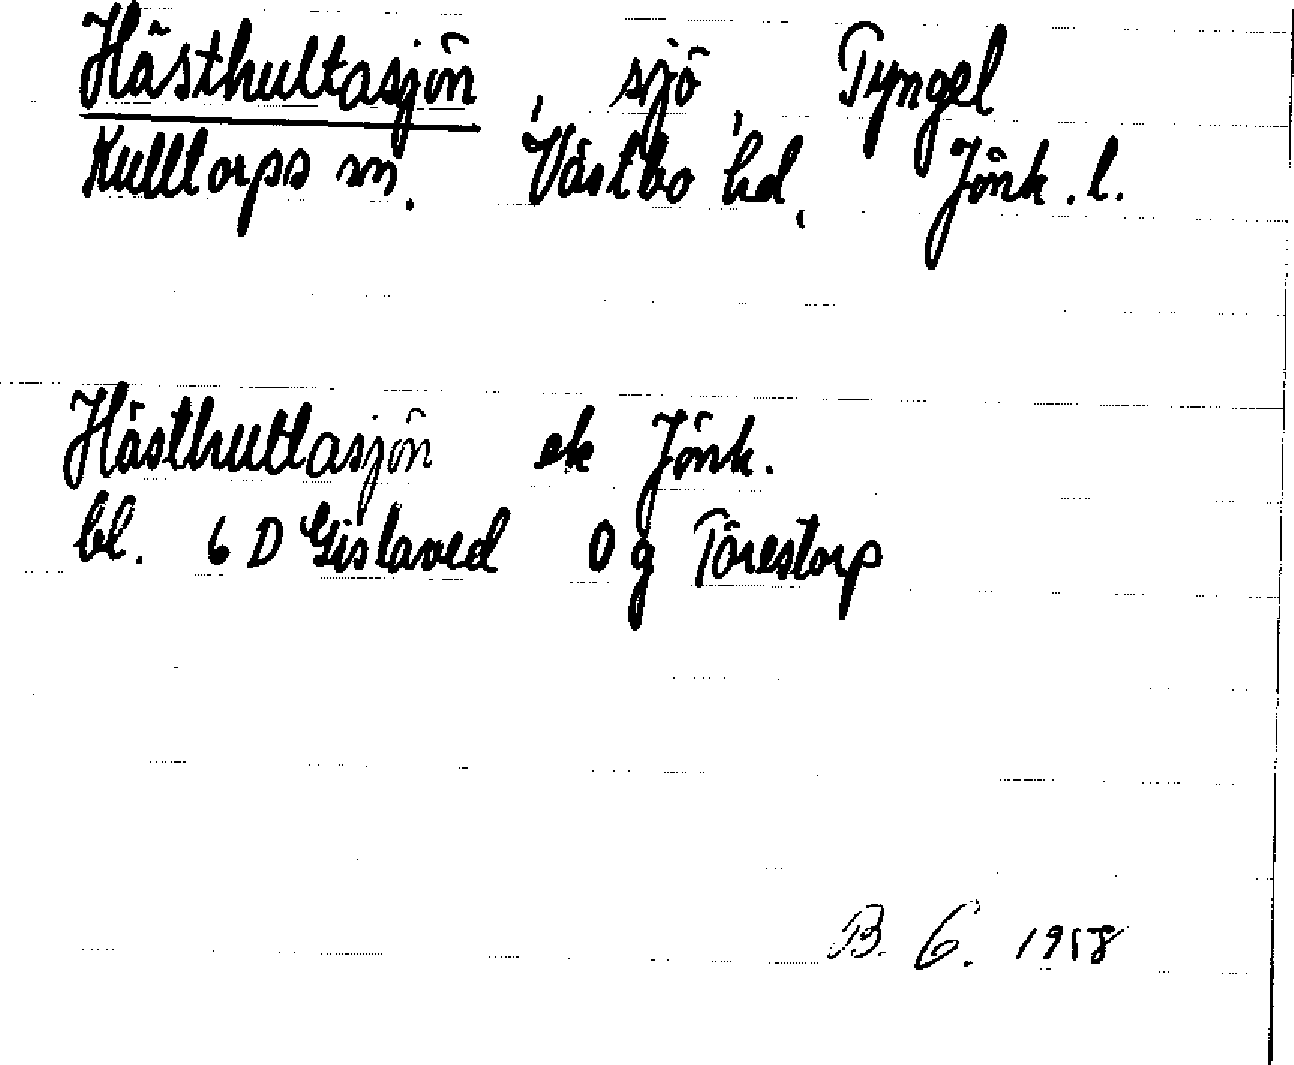 Hästhultasjön, sjö Tyngel
Kulltorps sn. Västbo hd. Jönk. l.
Hästhultasjön ek Jönk.
bl. 6 D Gislaved 0 g Törestorp
B. G. 1958